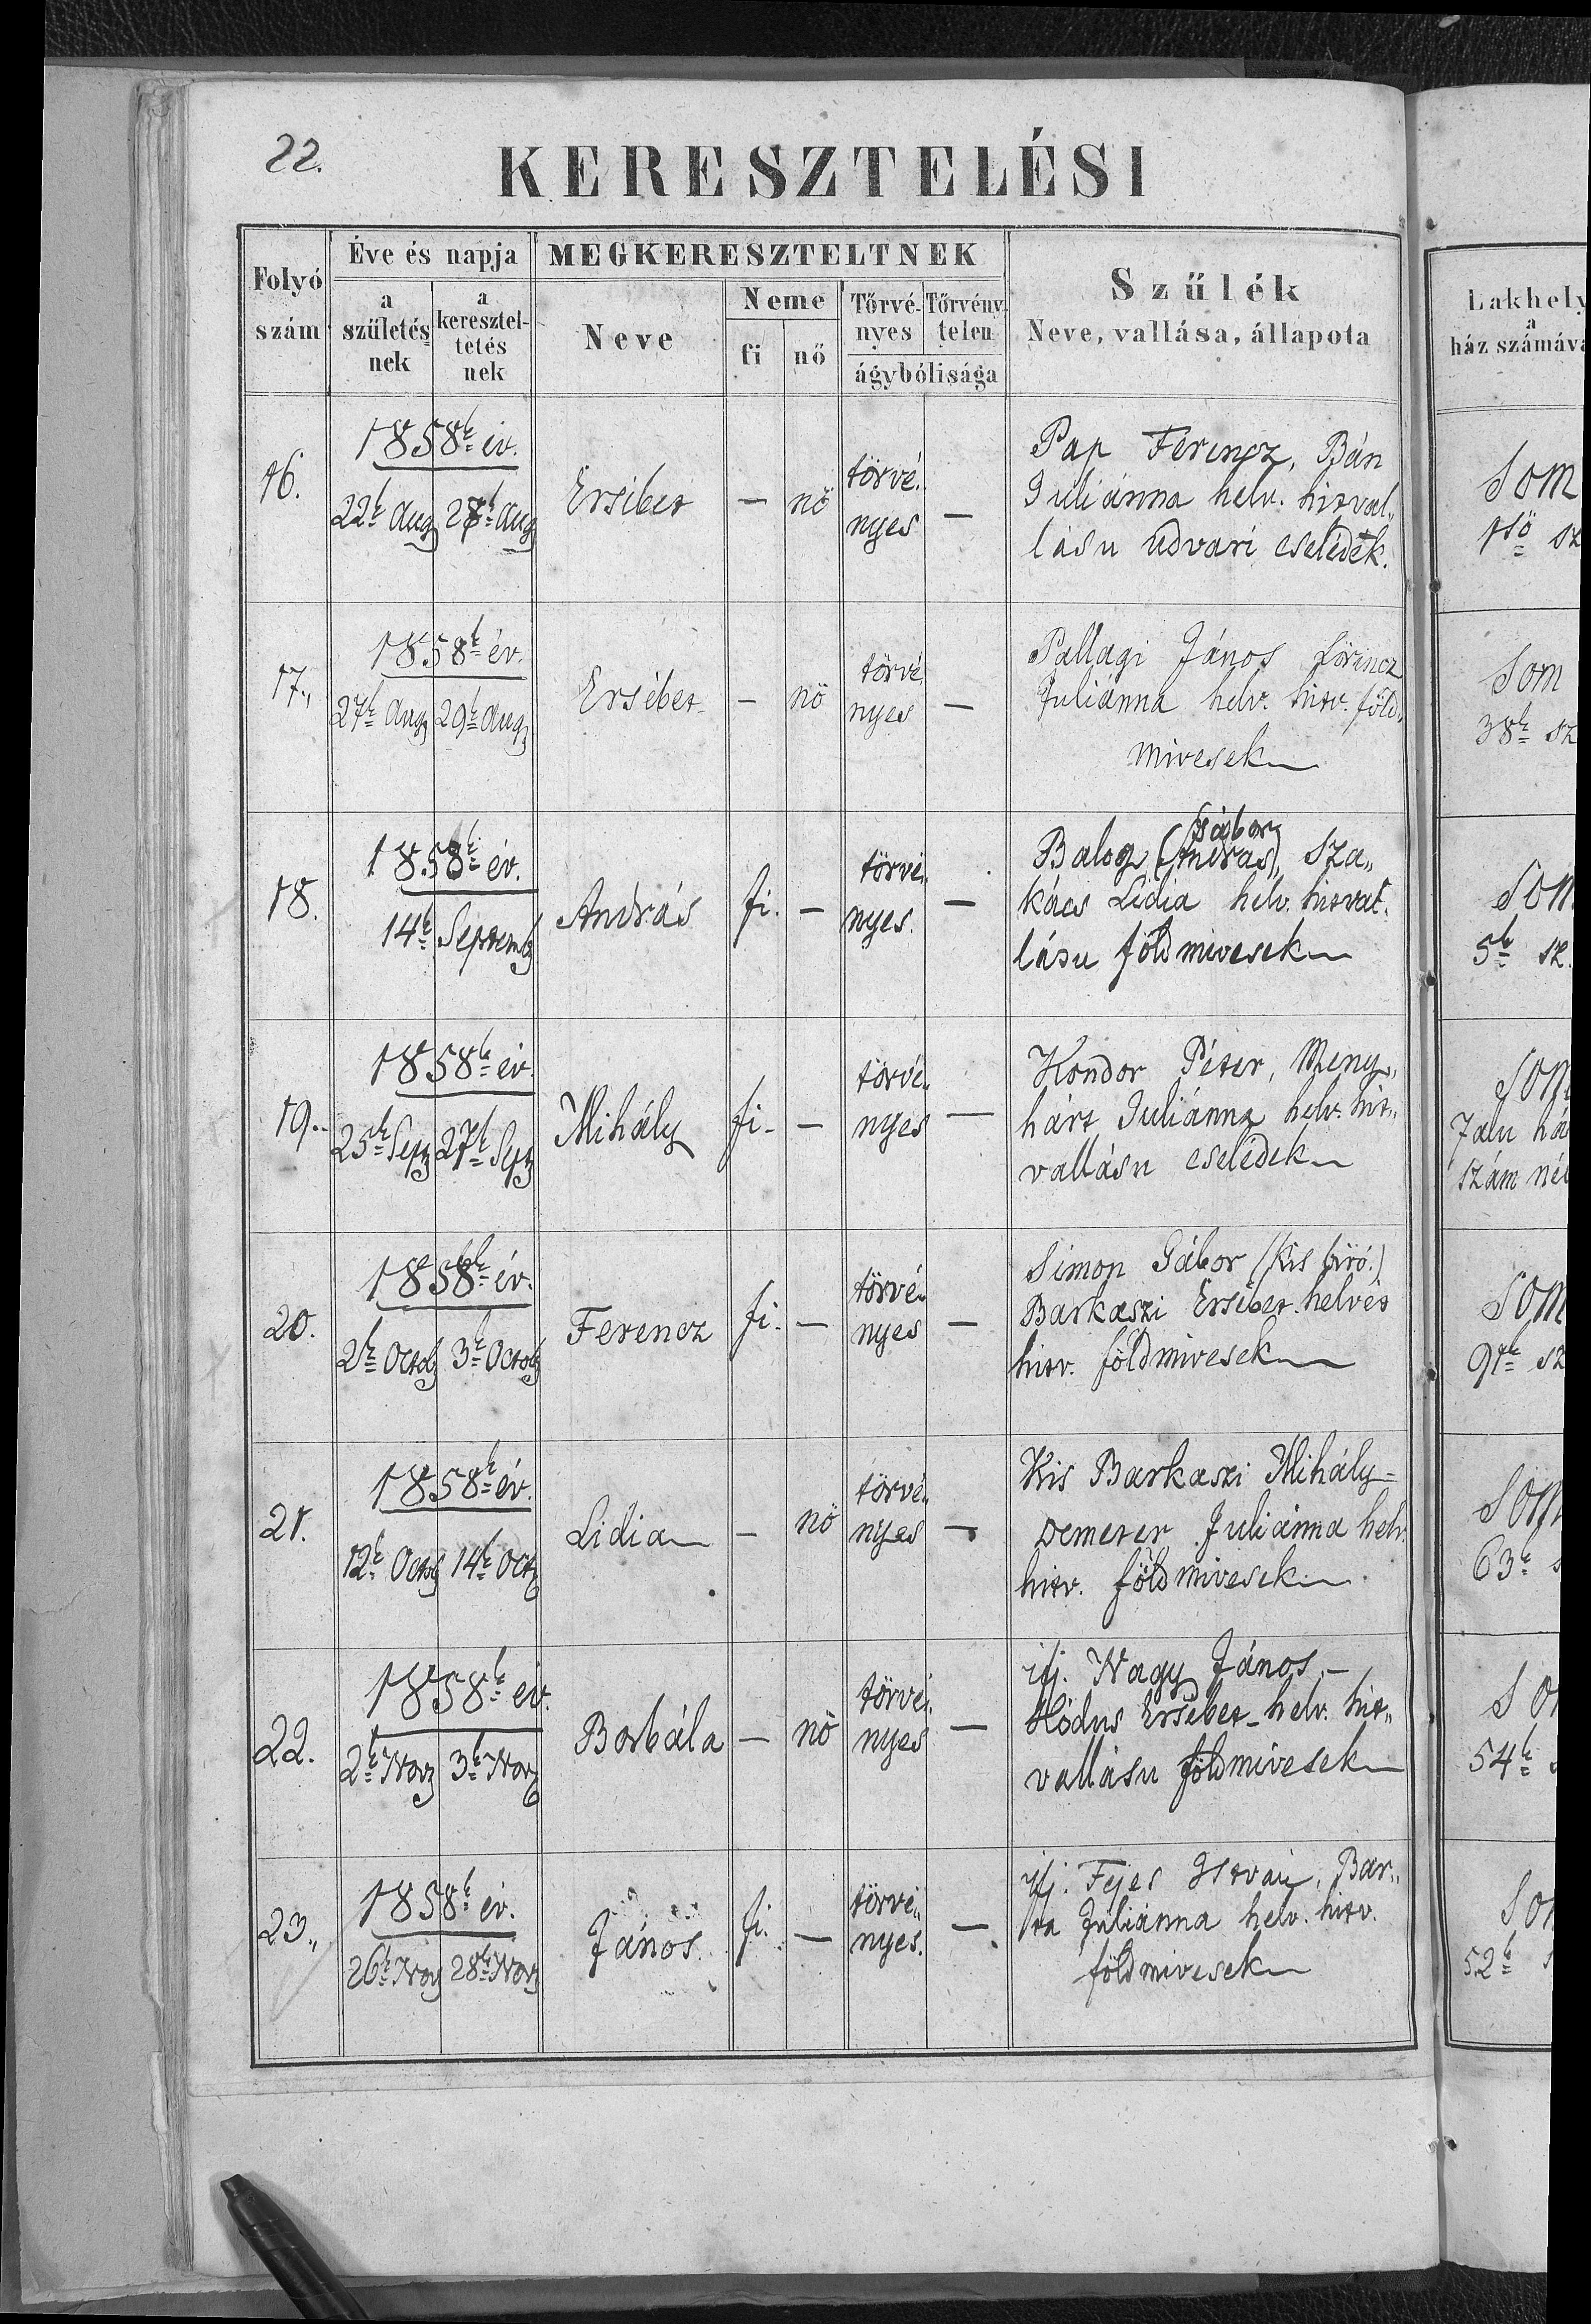 22.
KERESZTELÉSI
Folyó szám
Éve és napja
a születés nek
a keresztel- tetés nek
MEGKERESZTELTNEK
Neve
Neme
fi
nő
Törvé- nyes
Törvény- telen
ágybólisága
Szülék
Neve, vallása, állapota
Lakhely
a
ház számáva
16.
1858k év.
22k Aug 27k Aug
Ersébet
—
nö
törvé.
nyes
—
Pap Ferencz, Bán
Juliánna helv. hitval„
lásu udvari cselédek.
Som
1sö sz
17„
1858k év.
27k Aug 29k Aug
Ersébet
—
nö
törvé
nyes
—
Pallagi János Lörincz
Juliánna helv. hitv. föld„
mivesek
Som
38k sz
18.
1858k év.
14k Septemb
András
fi.
—
törvé.
nyes.
—
Gábor
Balog (András), Sza„
kács Lidia helv. hitval.
lásu földmivesek
Som
5k sz.
19.
1858k év.
25k Sept 27k Sept
Mihály
fi.
—
törvé.
nyes
—
Kondor Péter, Meny„
hárt Juliánna helv. hit„
vallásu cselédek
Som
falu há
szám nél
20.
1858k év.
2k Octob 3k Octob
Ferencz
fi.
—
törvé„
nyes
—
Simon Gábor (Kis biró.)
Barkaszi Ersébet helvét
hitv. földmivesek
Som
91k sz
21.
1858k év.
12k Octob 14k Oct
Lidia
—
nö
törvé„
nyes
—
Kis Barkaszi Mihály=
Demeter Juliánna helv.
hitv. földmivesek
Som
63k s
22.
1858k év.
2k Nov 3k Nov
Borbála
—
nö
törvé.
nyes
—
ifj. Nagy János –
Hódus Ersébet – helv. hit„
vallásu földmivesek
So
54k
23„
1858k év.
26k Nov 28k Nov
János
fi.
—
törvé„
nyes.
—
ifj. Fejes István, Bar„
ta Juliánna helv. hitv.
földmivesek
So
52k